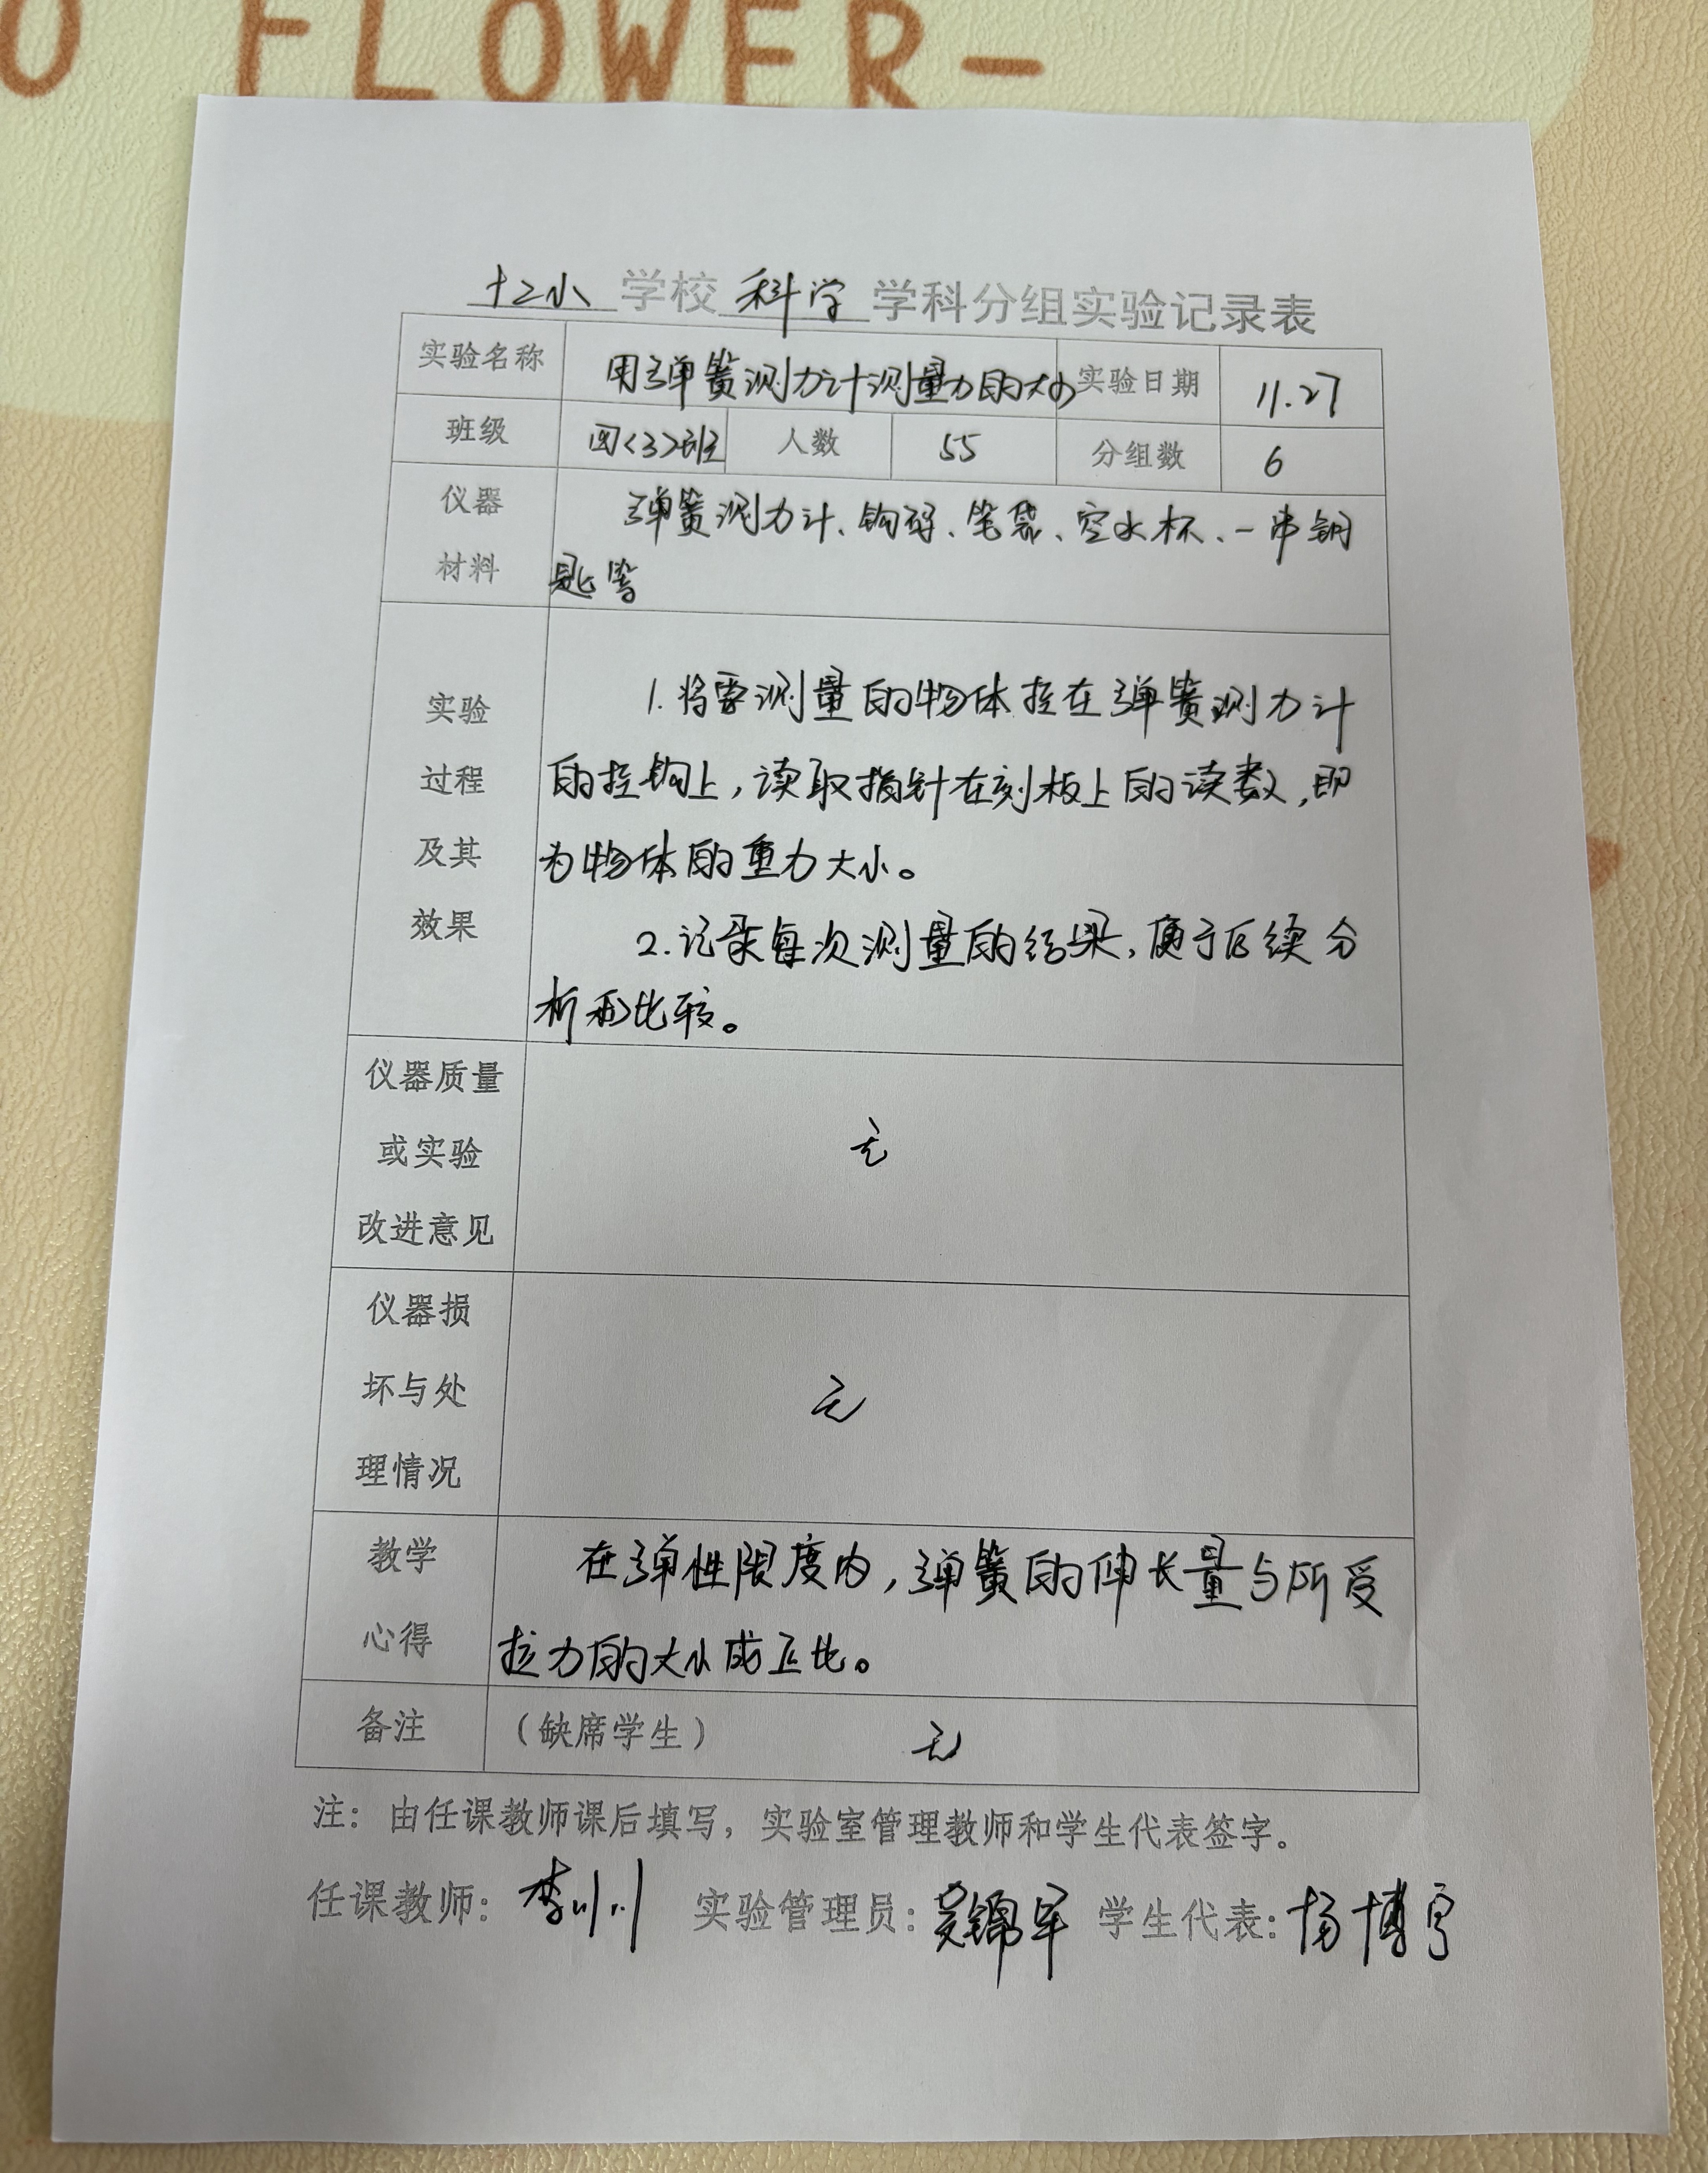 O FLOWER-
十二小 学校 科学 学科分组实验记录表
实验名称 用弹簧测力计测量力的大小 实验日期 11.27
班级 四<3>班 人数 55 分组数 6
仪器 弹簧测力计、钩码、笔袋、空水杯、一串钥
材料 匙等
实验
过程
及其
效果
1.将要测量的物体挂在弹簧测力计
的挂钩上,读取指针在刻板上的读数,即
为物体的重力大小。
2.记录每次测量的结果,便于后续分
析和比较。
仪器质量
或实验
改进意见
无
仪器损
坏与处
理情况
无
教学 在弹性限度内,弹簧的伸长量与所受
心得 拉力的大小成正比。
备注 (缺席学生) 无
注:由任课教师课后填写,实验室管理教师和学生代表签字。
任课教师: 李川川 实验管理员: 吴锦军 学生代表: 杨博